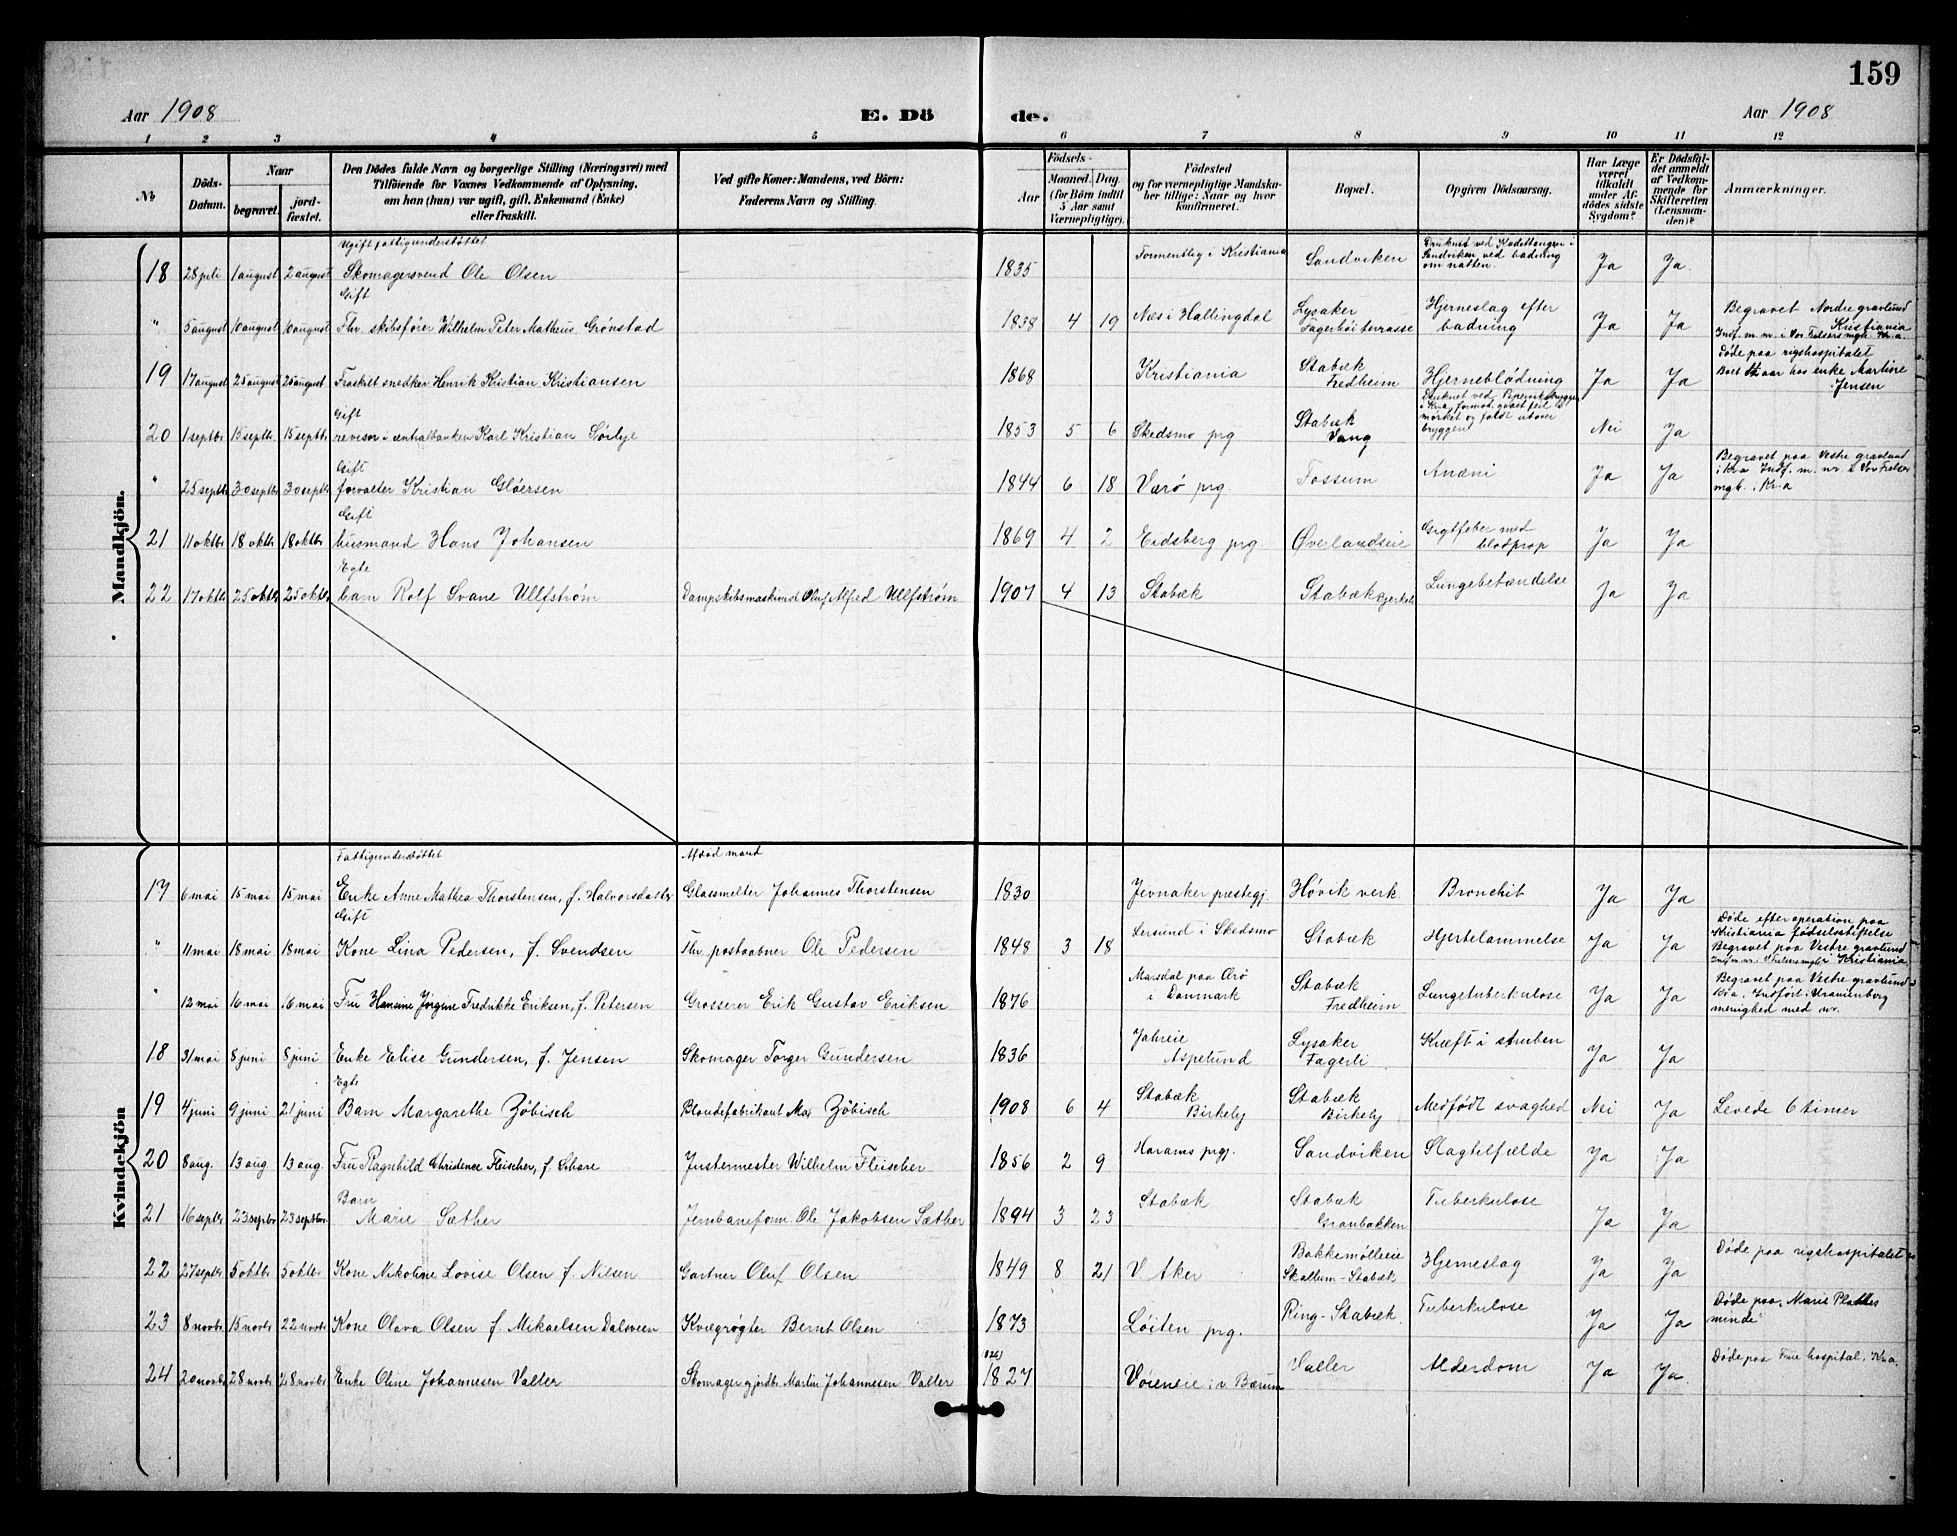 159
Aar 1908
E. Dö
de.
Aar 1908
1 2 3 4 5 6 7 8 9 10 11 12
№
Döds-Datum.
Naar
begravet.
jord-fæstet.
Den Dödes fulde Navn og borgerlige Stilling (Næringsvei) med
Tilföiende for Voxnes Vedkommende af Oplysning,
om han (hun) var ugift, gift, Enkemand (Enke)
eller fraskilt.
Ved gifte Koner: Mandens, ved Börn:
Faderens Navn og Stilling.
Födsels-
Aar
Maaned. Dag
(for Börn indtil
5 Aar samt
Værnepligtige).
Födested
og for værnepligtige Mandska-
ber tillige: Naar og hvor
konfirmeret.
Bopæl.
Opgiven Dödsaarsag.
Har Læge
været
tilkaldt
under Af-
dödes sidste
Sygdom?
Er Dödsfal-
det anmeldt
af Vedkom-
mende for
Skifteretten
(Lensman-
den)?
Anmærkninger.
Mandkjön.
Ugift fattigunderstøttet
18 28 juli 1 august 2 august Skomagersvend Ole Olsen 1835 Formentlig i Kristiania Sandviken Druknet ved Kadettangen i Sandviken ved badning om natten. Ja Ja
Gift
" 5 august 10 august 10 august Fhv skibsfører Wilhelm Peter Matheus Grønstad 1858 4 19 Næs i Hallingdal Lysaker Fagerhøiterrasse Hjerneslag efter badning Ja Ja Begravet Nordre gravlund Kristiania Indf. m. nr. i Vor Frelsers mgh. Kr.a.
19 17 august 25 august 25 august Fraskilt snedker Henrik Kristian Kristiansen 1868 Kristiania Stabæk Fredheim Hjerneblödning Ja Ja Døde paa rigshospitalet Boet aar hos enke Martine Jensen
Gift
20 1 septbr 15 septbr 15 septbr revisor i centralbanken Karl Kristian Sörlye 1853 5 6 Skedsmo prg Stabæk Vang Druknet ved Pipervikbryggen i Kr.a, formod. gaaet feil i mørket og faldt utover bryggen Nei Ja
Gift
" 25 septbr 30 septbr 30 septbr forvalter Kristian Gløersen 1844 6 18 Værø prg Fossum Anæmi Ja Ja Begravet paa Vestre gravlund i Kr.a Indf. m. nr. i Vor Frelser mgh. i Kr.a
Gift
21 11 oktbr 18 oktbr 18 oktbr husmand Hans Johansen 1869 4 2 Eidsberg prg. Øverlandseie Gigtfeber med blodprop Ja Ja
Egte
22 17 oktbr 25 oktbr 25 oktbr barn Rolf Svane Ullfstrøm Dampskibsmaskinist Oluf Alfred Ullfstrøm 1907 4 13 Stabæk Stabæk Lungebetændelse Ja Ja
Kvindekjön
Fattigunderstøttet Afdød mand
17 6 mai 15 mai 15 mai Enke Anne Mathea Thorstensen, f. Halvorsdatter Glassmelter Johannes Thorstensen 1830 Jevnaker præstegj. Høvik verk. Bronchit Ja Ja
Gift
" 11 mai 18 mai 18 mai Kone Lina Pedersen, f. Svendsen Fhv postaabner Ole Pedersen 1848 3 18 i Skedsmo Stabæk Hjertelammelse Ja Ja Døde efter operation paa Kristiania fødselsstiftelse Begravet paa Vestre gravlund i Kristiania
" 12 mai 16 mai 16 mai Fru Hansine Jørgine Fredrikke Eriksen, f. Petersen Grosserer Erik Gustav Eriksen 1876 Marsdal paa Ærø i Danmark Stabæk Fredheim Lungetuberkulose Ja Ja Begravet paa Vestre gravlund Kr.a. Indført i Uranienborg menighed med nr.
18 31 mai 8 juni 8 juni Enke Elise Gundersen, f. Jensen Skomager Torger Gundersen 1836 Aspelund Lysaker Fagerli Kræft i struben Ja Ja
Egte
19 4 juni 9 juni 21 juni Barn Margarethe Zöbisch Blondefabrikant Max Zöbisch 1908 6 4 Stabæk Birkely Stabæk Birkely Medfödt svaghed Nei Ja Levede 6 timer
20 8 aug. 13 aug 13 aug. Fru Ragnhild Fleischer, f. Justermester Wilhelm Fleischer 1856 2 9 Harams prgj. Sandviken Slagtilfælde Ja Ja
Barn
21 16 septbr 23 septbr 23 septbr. Marie Sæther Jernbaneform. Ole Jakobsen Sæther 1894 3 23 Stabæk Stabæk Granbakken Tuberkulose Ja Ja
22 27 septbr 5 oktbr 5 oktbr Kone Nikoline Lovise Olsen f. Nilsen Gartner Oluf Olsen 1849 8 21 V Aker Bakkemølleeie Skallum-Stabæk Hjerneslag Ja Ja Døde paa rigshospitalet
23 8 novbr 15 novbr 22 novbr Kone Olava Olsen f. Mikaelsen Dalsveen Kvægrøgter Bernt Olsen 1873 Løiten prg. Ring-Stabæk Tuberkulose Ja Ja Døde paa "Marie Plathes minde"
24 20 novbr 28 novbr 28 novbr Enke Oline Johannesen Valler Skomager gjørdlr. Martin Johannesen Valler 1827 Vøieneie i v Bærum Valler Alderdom Ja Ja. Døde paa Frue hospital, Kr.a.